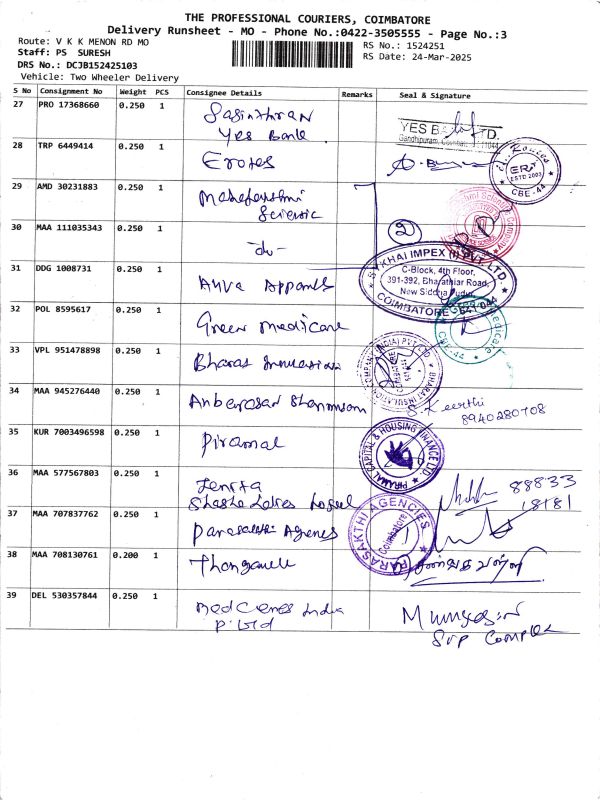 THE PROFESSIONAL COURIERS, COIMBATORE
Delivery Runsheet - MO - Phone No.:0422-3505555 - Page No.:3
Route: V K K MENON RD MO
RS No.: 1524251
Staff: PS SURESH
RS Date: 24-Mar-2025
DRS No.: DCJB152425103
Vehicle: Two Wheeler Delivery
S No Consignment No Weight PCS Consignee Details Remarks Seal & Signature
27 PRO 17368660 0.250 1
Yes Bank
YES B TD.
Gandhipuram, Coimbat
28 TRP 6449414 0.250 1
ERA
ESTD 2003
CBE-44
29 AMD 30231883 0.250 1 Mahalakshmi
Scientific
2
30 MAA 111035343 0.250 1 -do-
IMPEX (I) PVT LTD.
C-Block, 4th Floor,
391-392, Bharathiar Road,
New Siddha Pudur
COIMBATORE - 641 044
31 DDG 1008731 0.250 1
32 POL 8595617 0.250 1 Green medicare
Medicare
CBE-44
33 VPL 951478898 0.250 1 Bharat Insulation
BHARAT INSULATION COMPANY (INDIA) PVT LTD
COIMBATORE
34 MAA 945276440 0.250 1
S. Keerthi
8940280708
35 KUR 7003496598 0.250 1 Piramal
PIRAMAL CAPITAL & HOUSING FINANCE LTD
36 MAA 577567803 0.250 1
88833
18181
37 MAA 707837762 0.250 1 Parasakthi Agencies
PARASAKTHI AGENCIES
Coimbatore
38 MAA 708130761 0.200 1
39 DEL 530357844 0.250 1
India
P. Ltd